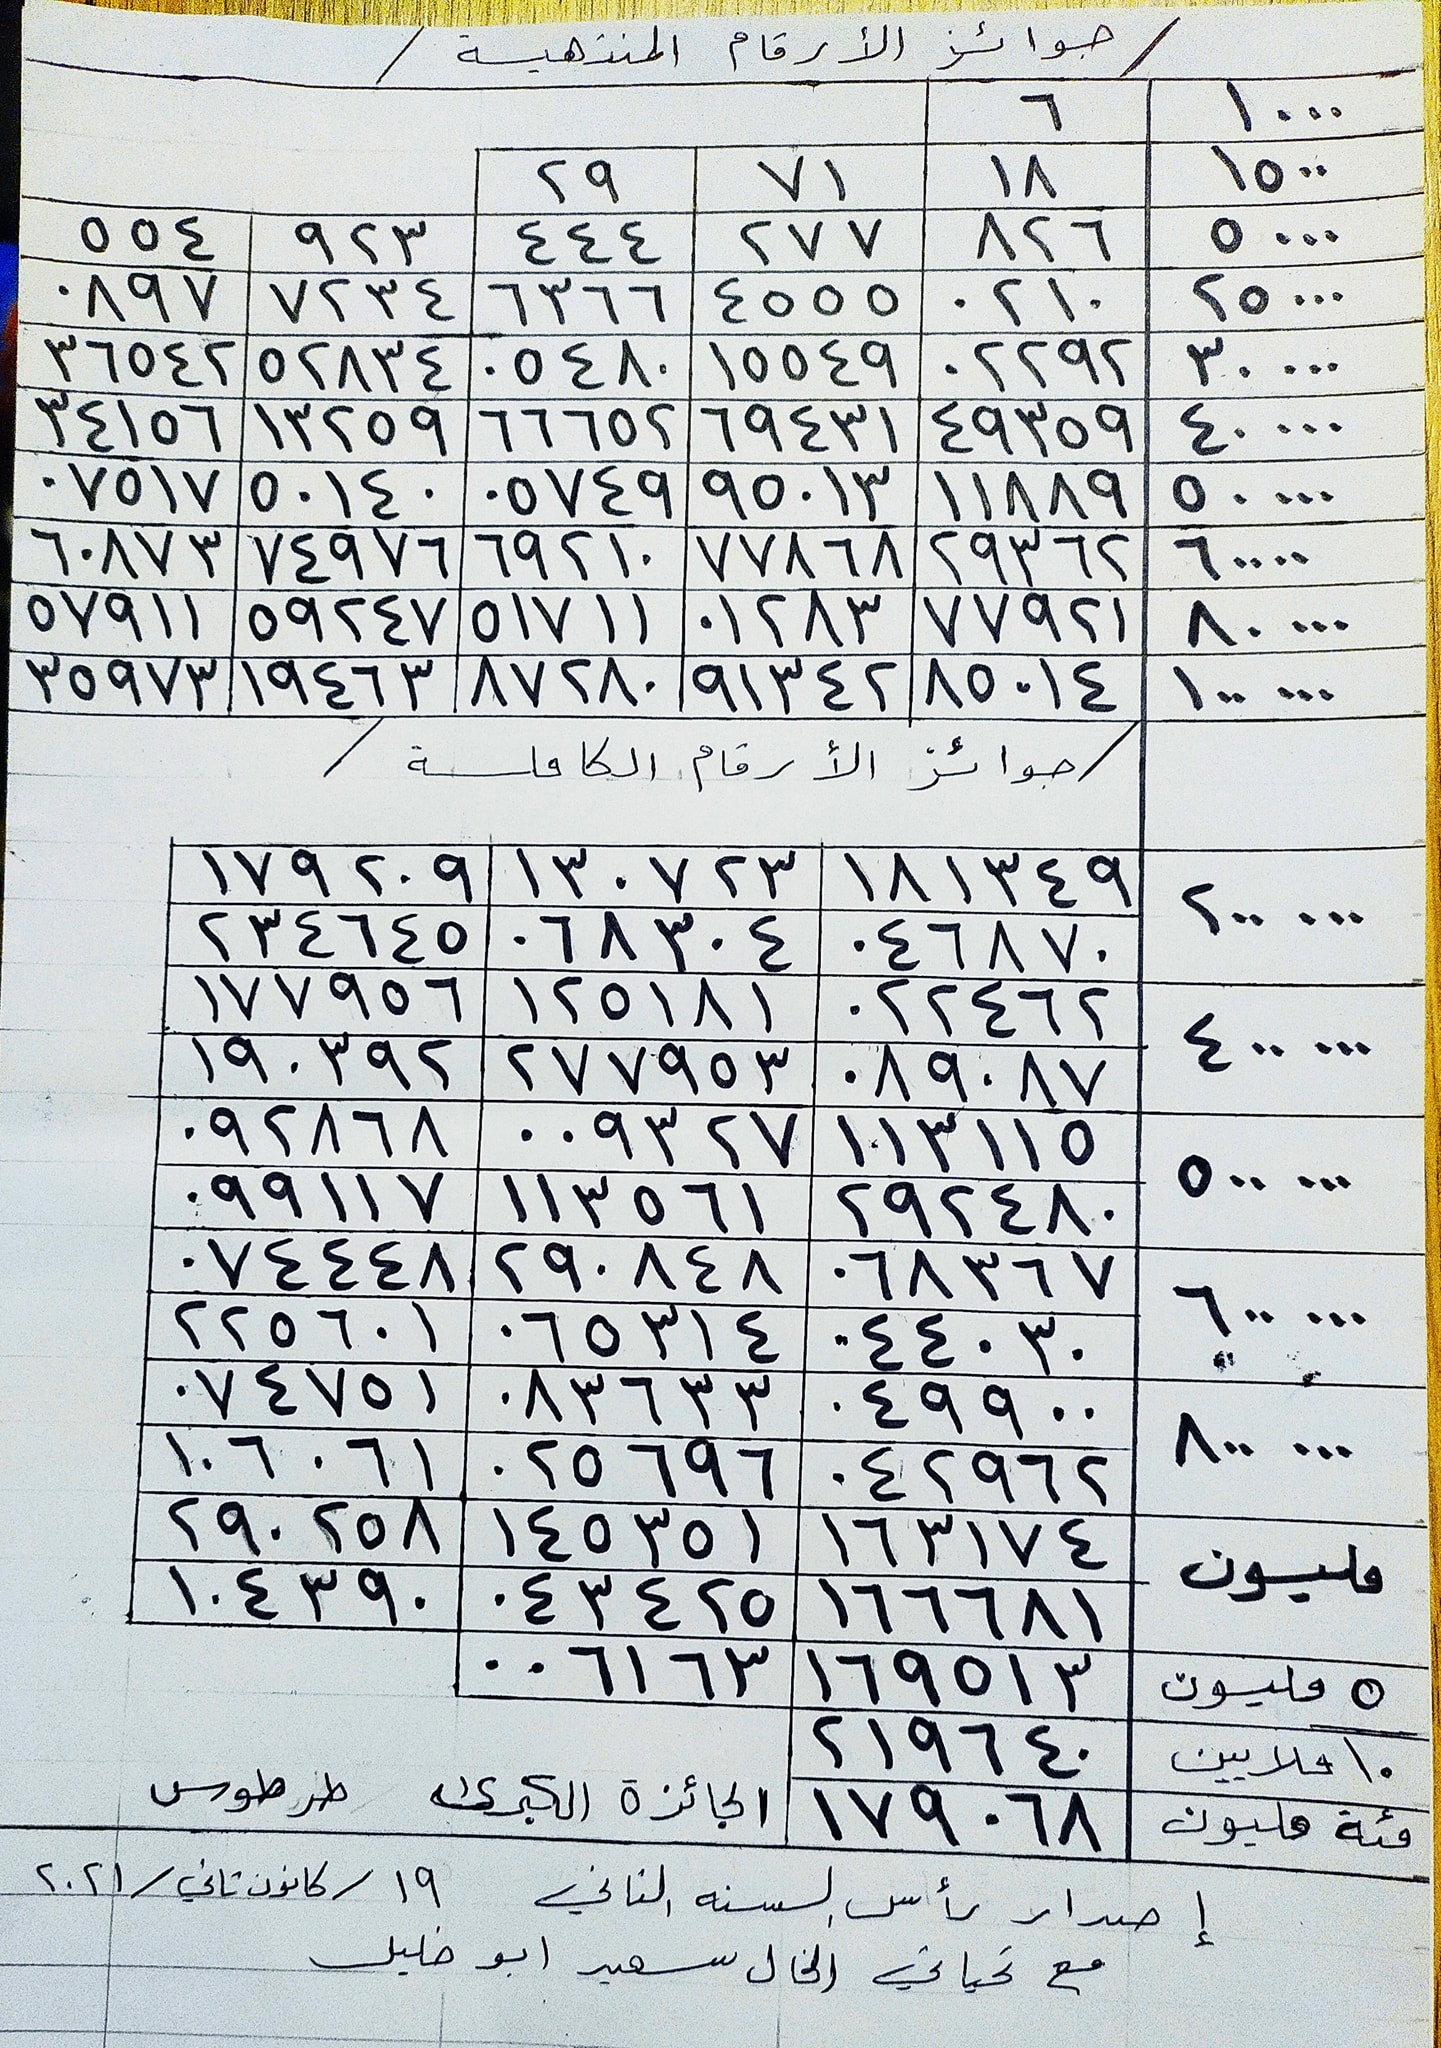 / جوائز الأرقام المنتهية /
١٠٠٠٠ ٦
١٥٠٠ ١٨ ٧١ ٢٩
٥٠٠٠ ٨٢٦ ٢٧٧ ٤٤٤ ٩٢٣ ٥٥٤
٢٥٠٠٠ ٠٢١٠ ٤٥٥٥ ٦٣٦٦ ٧٢٣٤ ٠٨٩٧
٣٠٠٠٠ ٠٢٢٩٢ ١٥٥٤٩ ٠٥٤٨٠ ٥٢٨٣٤ ٣٦٥٤٢
٤٠٠٠٠ ٤٩٣٥٩ ٦٩٤٣١ ٦٦٦٥٢ ١٣٢٥٩ ٣٤١٥٦
٥٠٠٠٠ ١١٨٨٩ ٩٥٠١٣ ٠٥٧٤٩ ٥٠١٤٠ ٠٧٥١٧
٦٠٠٠٠ ٢٩٣٦٢ ٧٧٨٦٨ ٦٩٢١٠ ٧٤٩٧٦ ٦٠٨٧٣
٨٠٠٠٠ ٧٧٩٢١ ٠١٢٨٣ ٥١٧١١ ٥٩٢٤٧ ٥٧٩١١
١٠٠٠٠٠ ٨٥٠١٤ ٩١٣٤٢ ٨٧٢٨٠ ١٩٤٦٣ ٣٥٩٧٣
/ جوائز الأرقام الكاملة /
٢٠٠٠٠٠ ١٨١٣٤٩ ١٣٠٧٢٣ ١٧٩٢٠٩
٠٤٦٨٧٠ ٠٦٨٣٠٤ ٢٣٤٦٤٥
٤٠٠٠٠٠ ٠٢٢٤٦٢ ١٢٥١٨١ ١٧٧٩٥٦
٠٨٩٠٨٧ ٢٧٧٩٥٣ ١٩٠٣٩٢
٥٠٠٠٠٠ ١١٣١١٥ ٠٠٩٣٢٧ ٠٩٢٨٦٨
٢٩٢٤٨٠ ١١٣٥٦١ ٠٩٩١١٧
٦٠٠٠٠٠ ٠٦٨٣٦٧ ٢٩٠٨٤٨ ٠٧٤٤٤٨
٠٤٤٠٣٠ ٠٦٥٣١٤ ٢٢٥٦٠١
٨٠٠٠٠٠ ٠٤٩٩٠٠ ٠٨٣٦٣٣ ٠٧٤٧٥١
٠٤٢٩٦٢ ٠٢٥٦٩٦ ١٠٦٠٦١
مليون ١٦٣١٧٤ ١٤٥٣٥١ ٢٩٠٢٥٨
١٦٦٦٨١ ٠٤٣٤٢٥ ١٠٤٣٩٠
٥ مليون ١٦٩٥١٣ ٠٠٦١٦٣
١٠ ملايين ٢١٩٦٤٠
مئة مليون ١٧٩٠٦٨ الجائزة الكبرى طرطوس
إصدار رأس السنه الثاني ١٩/كانون ثاني/٢٠٢١
مع تحياتي الخال سعيد ابو خليل